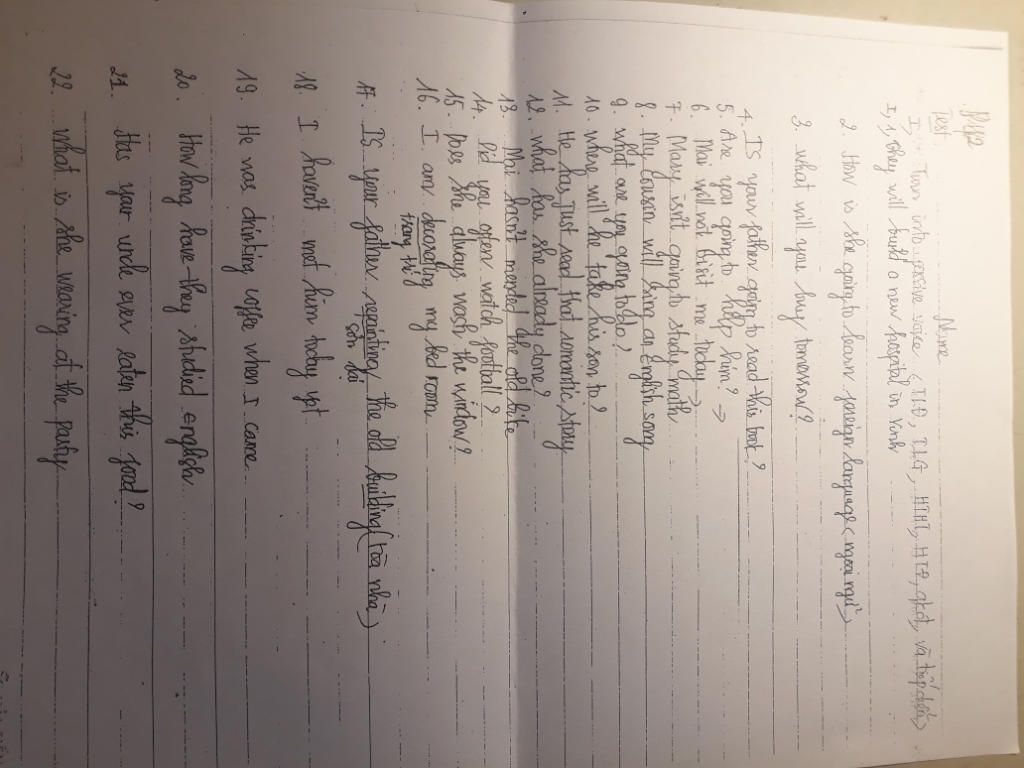 Name
Test
I, Turn into passive voice (TLĐ, TLG, HTHT, HTĐ, qkđ,
I, 1, They will build a new hospital in Vinh
2. How is she going to learn foreign language (ngoại ngữ)
3. what will you buy tomorrow?
4. IS your father going to read this book?
5. Are you going to help him? →
6. Mai will not visit me today →
7. Mary isn't going to study math
8. My cousin will sing an English song
9. what are you going to do?
10. where will he take his son to?
11. He has just read that romantic story
12. what has she already done?
13. Mai hasn't mended the old bike
14. Did you often watch football?
15. Does she always wash the window?
16. I am decorating my bed room
trang trí
17. IS your father repainting the old building (tòa nhà)
sơn lại
18. I haven't met him today yet
19. He was drinking coffee when I came
20. How long have they studied english
21. Has your uncle ever eaten this food?
22. What is she wearing at the party